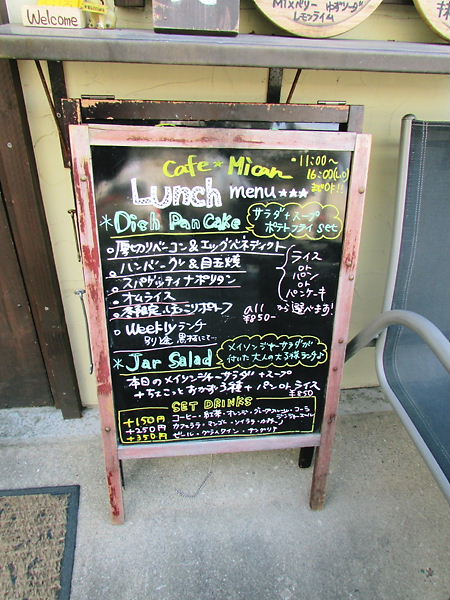 Welcome
Mixベリー ゆずソーダ
レモンライム
Cafe＊Mican
・11:00〜
16:00(L.O)
までOK!!
Lunch menu★★★
＊Dish Pancake
サラダ+スープ
ポテトフライ set
○厚切りベーコン&エッグベネディクト
○ハンバーグ&目玉焼
○スパゲッティナポリタン
○オムライス
ライス
or
パン
or
パンケーキ
から選べます!
all
¥850-
○Weeklyランチ
別途黒板にて…
＊Jar Salad
メイソンジャーサラダが
付いた大人の
本日のメイソンジャーサラダ+スープ
+ちょこっとおかず3種+パンorライス
¥850
SET DRINKS
+150円 コーヒー・紅茶・オレンジ・グレープフルーツ・コーラ
ジンジャーエール
+250円 カフェラテ・マンゴー・ソイラテ
+350円 ビール・グラスワイン・サングリア